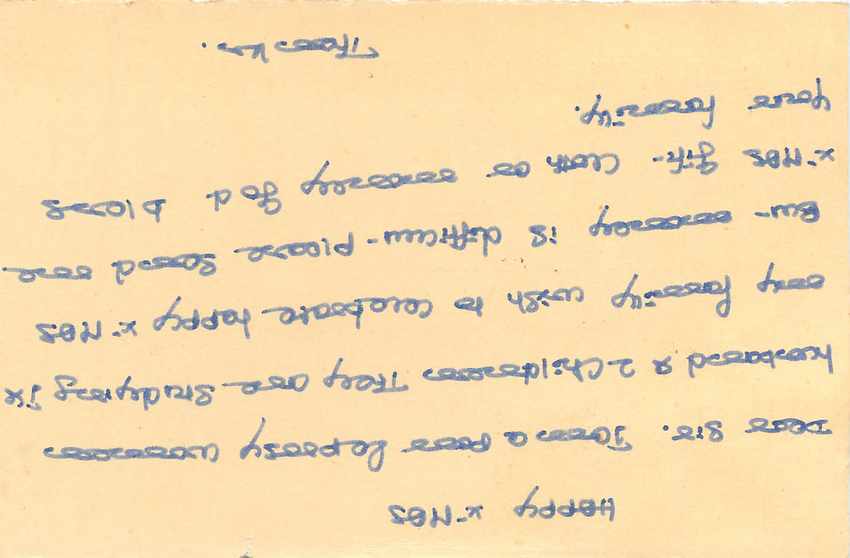 HAPPY X-MAS
Dear Sir. I am a poor Leprosy woman
husband & 2 Children They are Studying ix
my family wish to celebrate happy X-MAS
But money is difficult - please Send me
X-MAS gift - Cloth or money God bless
your family.